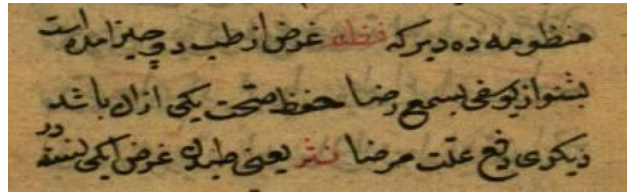 منظومه ده دیر که قطعه غرض از طب دو چیز آمده است
بشنو از یوسفی بسمع رضا حفظ صحت یکی ازان باشد
دیکری رفع علت مرضا نثر یعنی طبدن غرض ایکی نسنه در